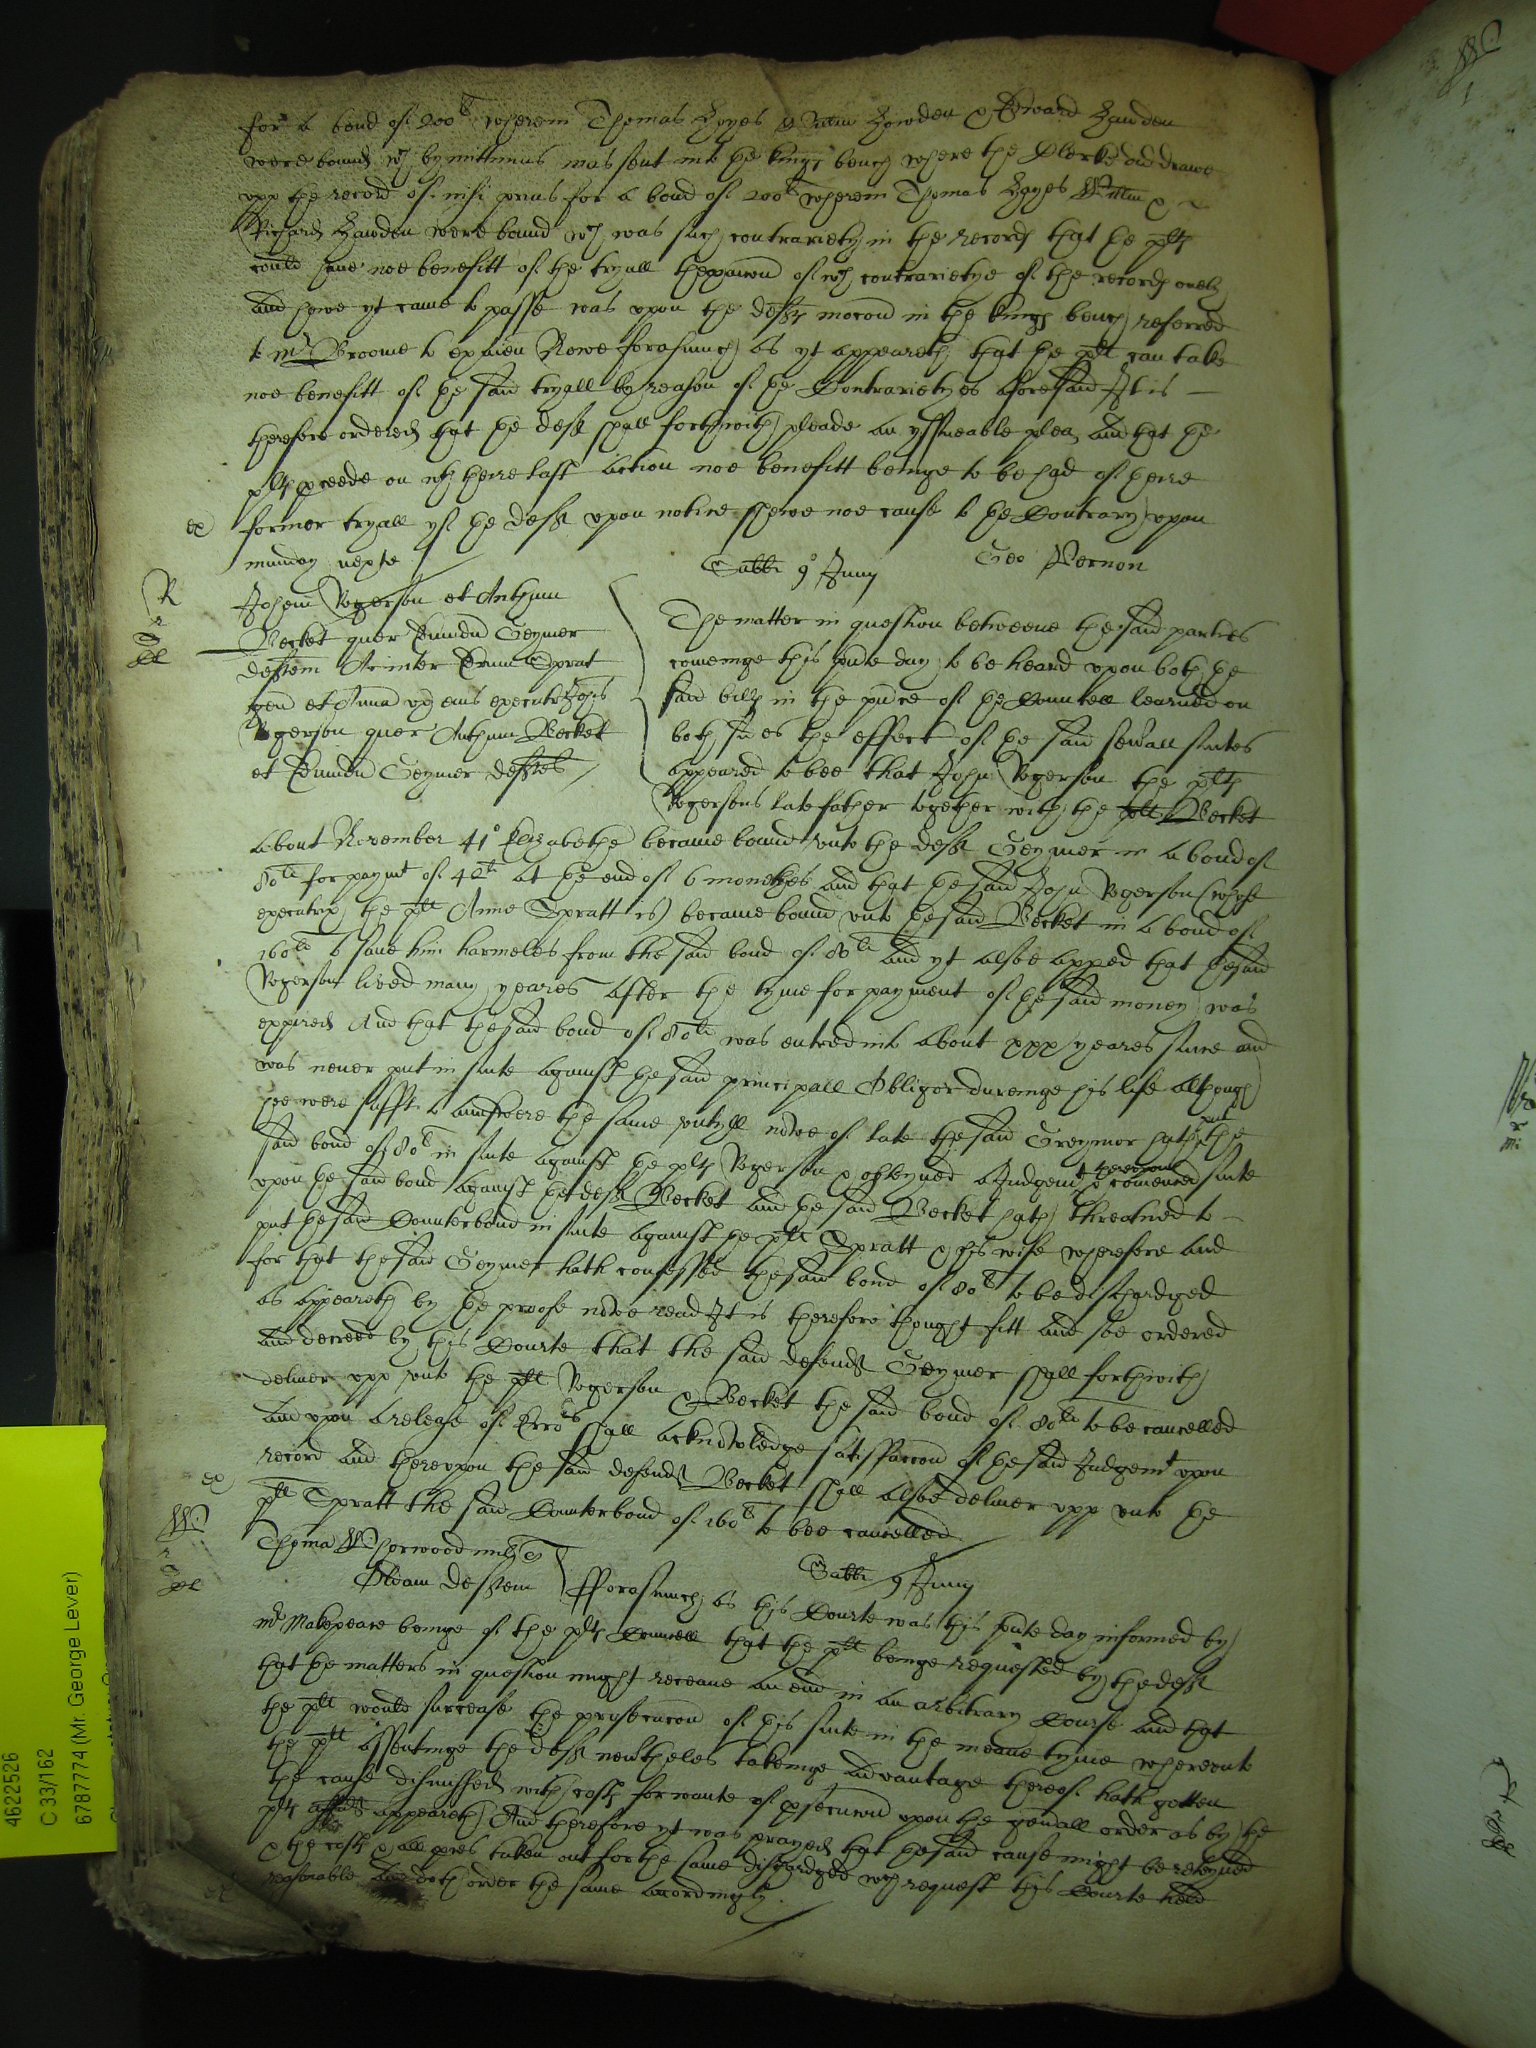 for a bond of 200li wherein Thomas Hayes Willm Hawden & Edward Hawden
were bound wch by mittimus was sent into the kings bench where the Clerke did drawe
upp the record of nisi prius for a bond of 200li wherein Thomas Hayes Willm &
Richard Hawden were bound wch was such contrariety in the records that the plts
could have noe benefitt of the tryall the of wch contrarietye of the records onely
and howe yt came to passe was upon the defts mocon in the kings bench referred
to mr Broome to Nowe forasmuch as yt appeareth that the plt can take
noe benefitt of the said tryall by reason of the Contrarietyes aforesaid It is
therefore ordered that the deft shall forthwith pleade an yssueable plea and that the
plts pceede on wth theire last action noe benefitt beinge to be had of theire
former tryall yf the deft upon notice shewe noe cause to the Contrary upon
munday nexte
Geo Vernon
Sabbi 9o Juny
R
Johem Rogerson et Anthum
Becket quer Edmdu Geymer
deftem Ac inter Edmu Spratt
gen et Anna ux eius execut Johis
Rogerson quer Anthum Becket
et Edmdu Geymer deftes
The matter in question betweene the said parties
comeinge this pnte day to be heard upon both the
said bills in the pnce of the Councell learned on
both sides the effect of the said sevall suites
appeared to bee that John Rogerson the plts
Rogersons late father together with the plt Becket
about November 41o Elizabethe became bound unto the deft Geymer in a bond of
80li for paymt of 42li at the end of 6 monethes and that the said John Rogerson (whose
executrix the plt Anne Spratt is) became bound unto the said Becket in a bond of
160li to save him harmeles from the said bond of 80li And yt alsoe apped that the said
Rogerson lived many yeares after the tyme for payment of the said money was
expired And that the said bond of 80li was entred into about xxx yeares since and
was never put in suite against the said principall Obligor dureinge his life although
hee were suffit to aunswere the same untyll nowe of late the said Geymer hath put the
said bond of 80li in suite against the plt Rogerson & obteyned a Judgemt thereupon & comenced suite
upon the said bond against the deft Becket and the said Becket hath threatned to
put the said Counterbond in suite against the plt Spratt & his wife wherefore and
for that the said Geymer hath confessed the said bond of 80li to be dischardged
as appeareth by the proofe nowe read It is therefore thought fitt and soe ordered
and decreed by this Courte that the said defendt Geymer shall forthwith
deliver upp unto the plt Rogerson & Becket the said bond of 80li to be cancelled
and upon a release of Errors shall acknowledge satisfaccon of the said Judgemt upon
record and thereupon the said defendt Becket shall alsoe deliver upp unto the
plt Spratt the said Counterbond of 160li to bee cancelled
Sabbi 9 Juny
W
Thoma Whorwood milit
Oldam deftem
Fforasmuch as this Courte was this pnte day informed by
mr Makepeace beinge of the plts Councell that the plt beinge requested by the deft
that the matters in question might receave an end in an arbitrary Course and that
the plt would surcease the prosecucon of his suite in the meane tyme whereunto
the plt assentinge the deft nevtheles takeinge advantage thereof hath gotten
the cause dismissed with costs for wante of psecucon upon the genall order as by the
plts affidt appeareth And therefore yt was prayed that the said cause might be reteyned
& the costs & all pces taken out for the same dischardged wch request this Courte held
reasonable and doth order the same accordingly
4622526
C 33/162
67877774 (Mr. George Lever)